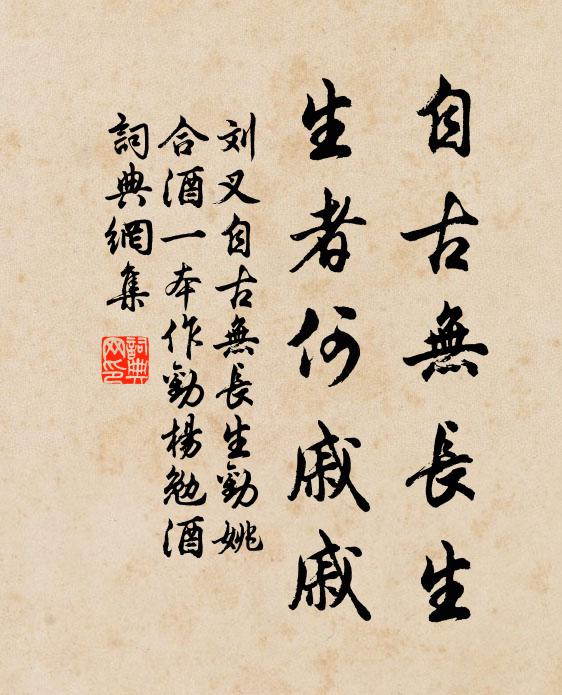 自古無長生
生者何戚戚
刘叉自古無長生勸姚
合酒一本作勸楊勉酒
詞典網集
詞典
网印